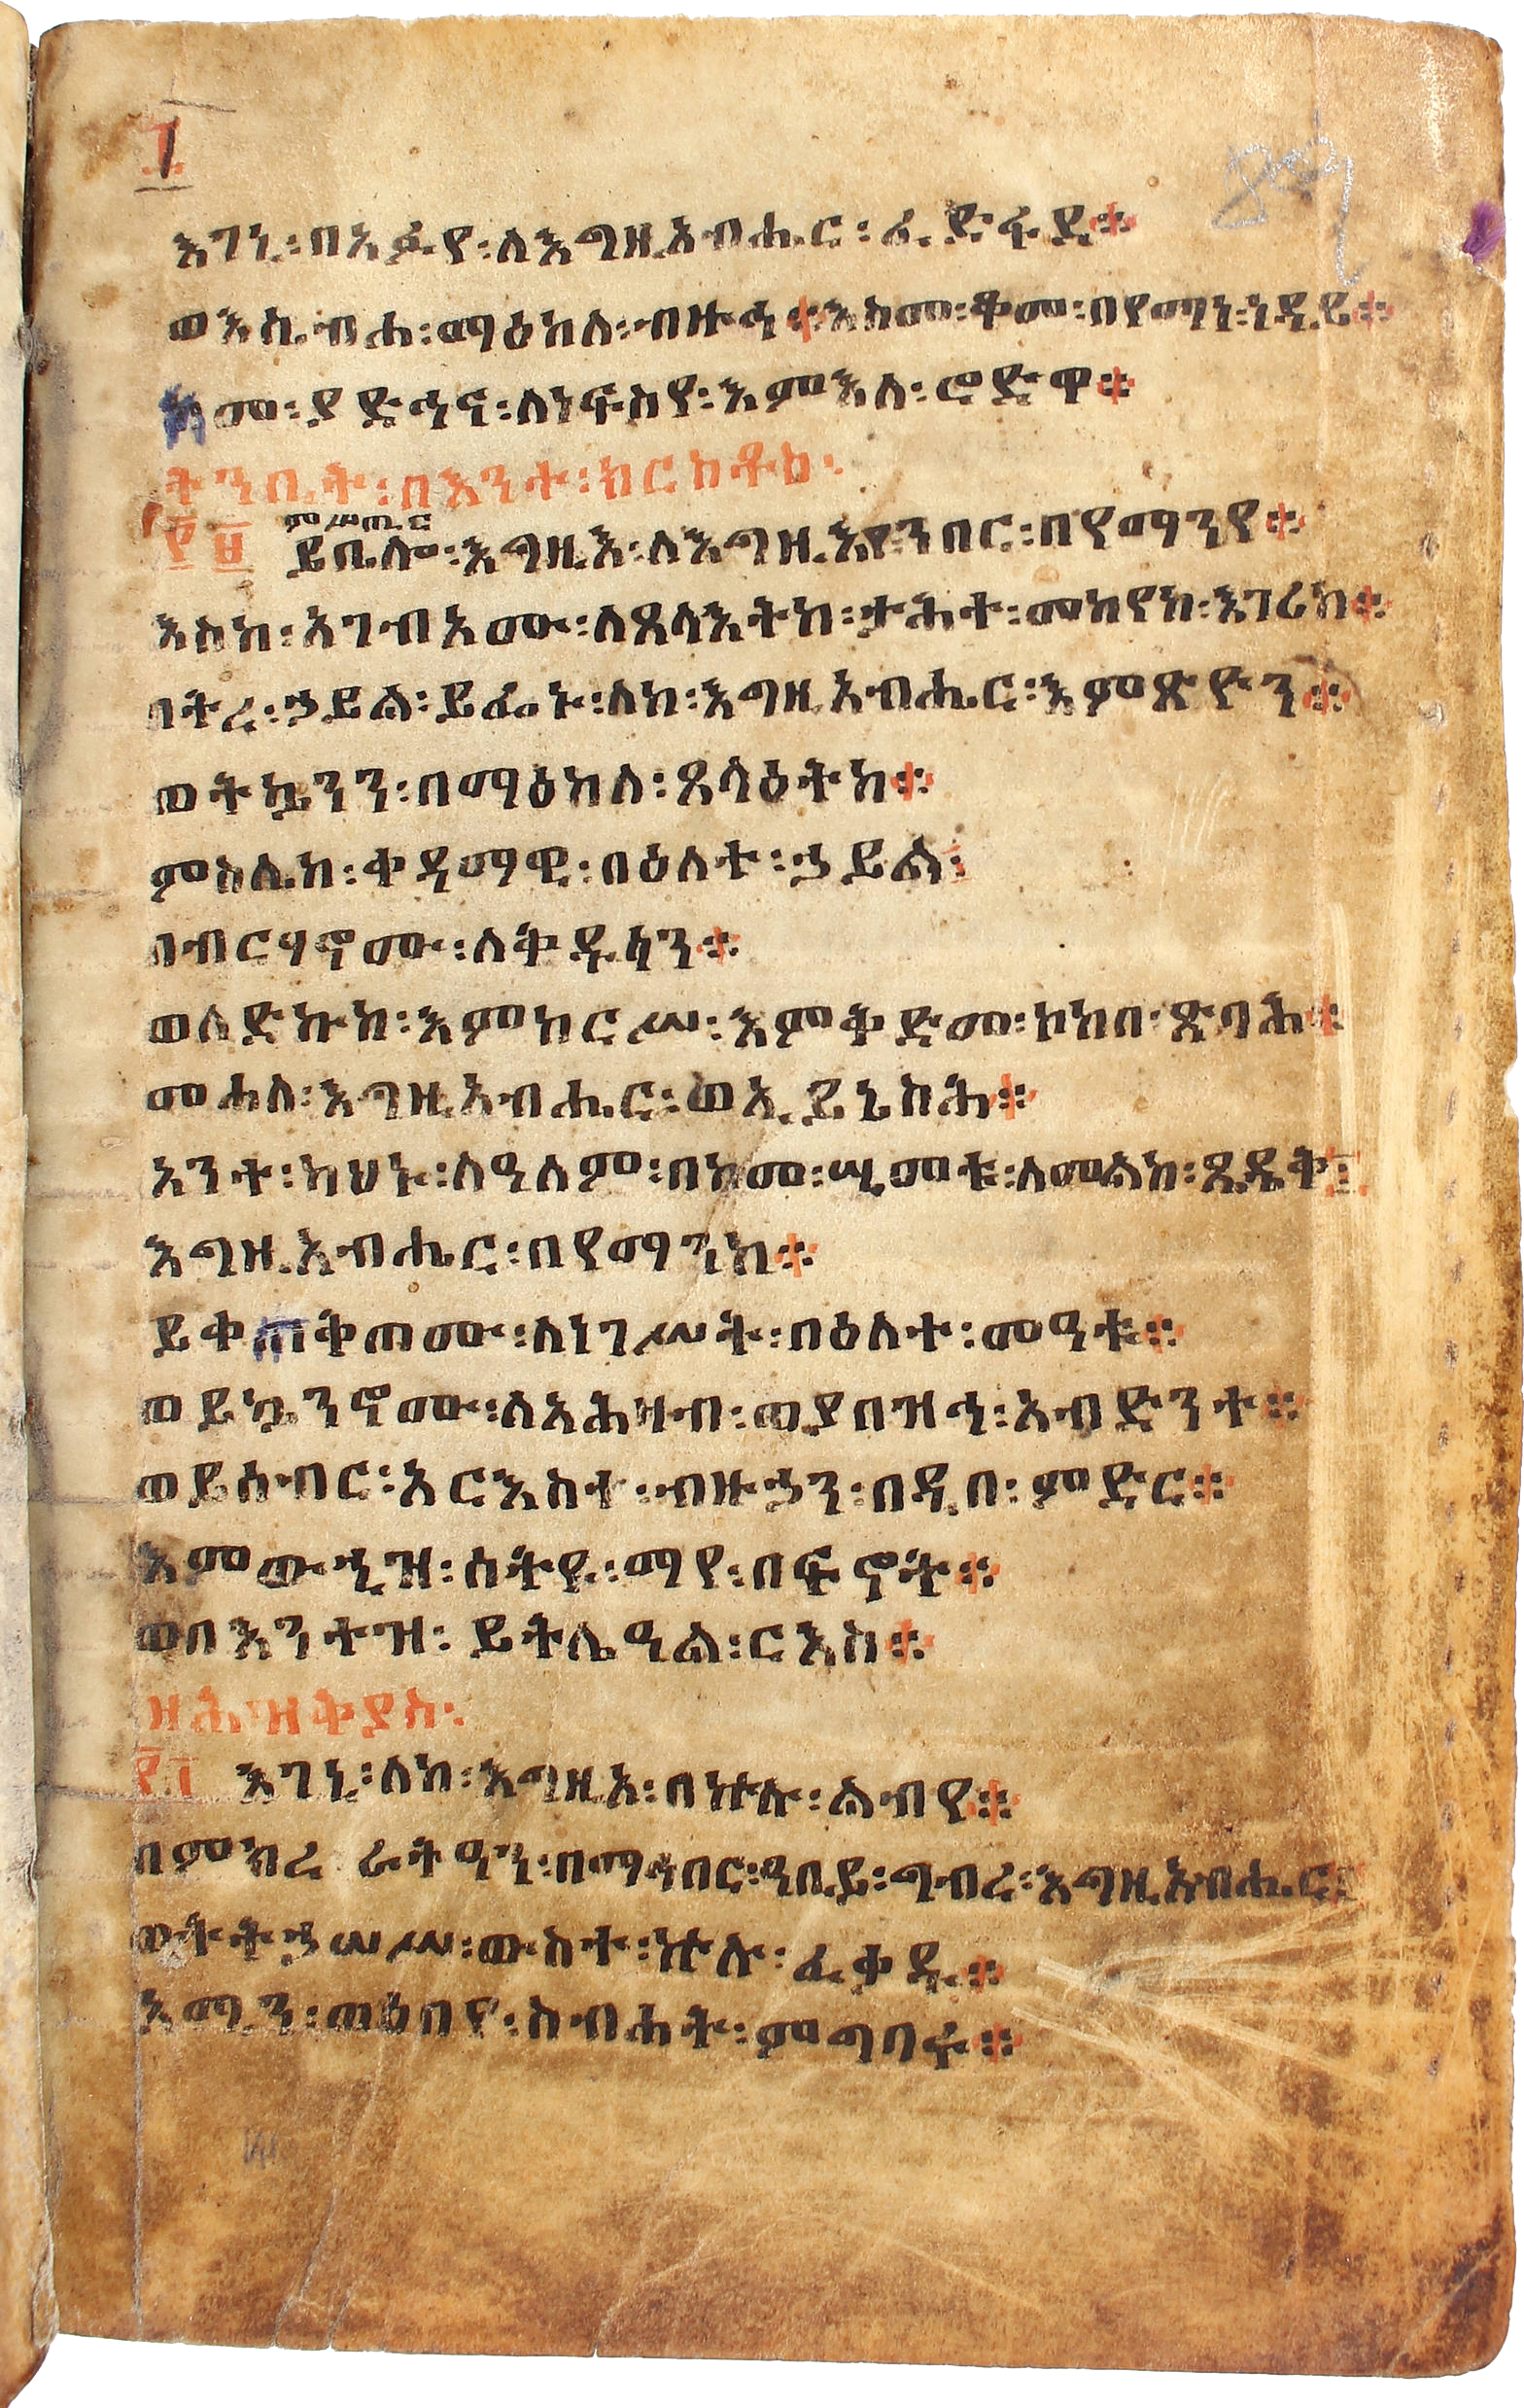 እገኒ፡በአፉየ፡ለእግዚአብሔር፡ፈድፋደ፨
ወእሴብሖ፡ማዕከለ፡ብዙኅ፨እስመ፡ቆመ፡በየማነ፡ነዳይ፨
ከመ፡ያድኅና፡ለነፍስየ፡እምእለ፡ሮድዋ፨
ትንቢት፡በእንተ፡ክርስቶስ፡
፻፱ ይቤሎ፡እግዚእ፡ለእግዚእየ፡ንበር፡በየማንየ፨
ምሥጢር
እስከ፡አገብኦሙ፡ለጸላእትከ፡ታሕተ፡መከየከ፡እገሪከ፨
በትረ፡ኃይል፡ይፌኑ፡ለከ፡እግዚአብሔር፡እምጽዮን፨
ወትኴንን፡በማዕከለ፡ጸላዕትከ፨
ምስሌከ፡ቀዳማዊ፡በዕለተ፡ኃይል፡
በብርሃኖሙ፡ለቅዱሳን፨
ወለድኩከ፡እምከርሥ፡እምቅድመ፡ኮከበ፡ጽባሕ፨
መሐለ፡እግዚአብሔር፡ወኢይኔስሕ፨
አንተ፡ካህኑ፡ለዓለም፡በከመ፡ሢመቱ፡ለመልከ፡ጼዴቅ፨
እግዚአብሔር፡በየማንከ፨
ይቀጠቅጦሙ፡ለነገሥት፡በዕለተ፡መዓቱ፨
ወይኴንኖሙ፡ለአሕዛብ፡ወያበዝኅ፡አብድንተ፨
ወይሰብር፡አርእስተ፡ብዙኃን፡በዲበ፡ምድር፨
እምውኂዝ፡ሰትየ፡ማየ፡በፍኖት፨
ወበእንተዝ፡ይትሌዓል፡ርእስ፨
ዘሕዝቅያስ፡
፻፲ እገኒ፡ለከ፡እግዚኦ፡በኵሉ፡ልብየ፨
በምክረ ራትዓን፡በማኅበር፡ዓቢይ፡ግብረ፡እግዚአብሔር፨
ወትትኃሠሥ፡ውስተ፡ኵሉ፡ፈቃዱ፨
አሚን፡ወዕበየ፡ስብሐት፡ምግባሩ፨